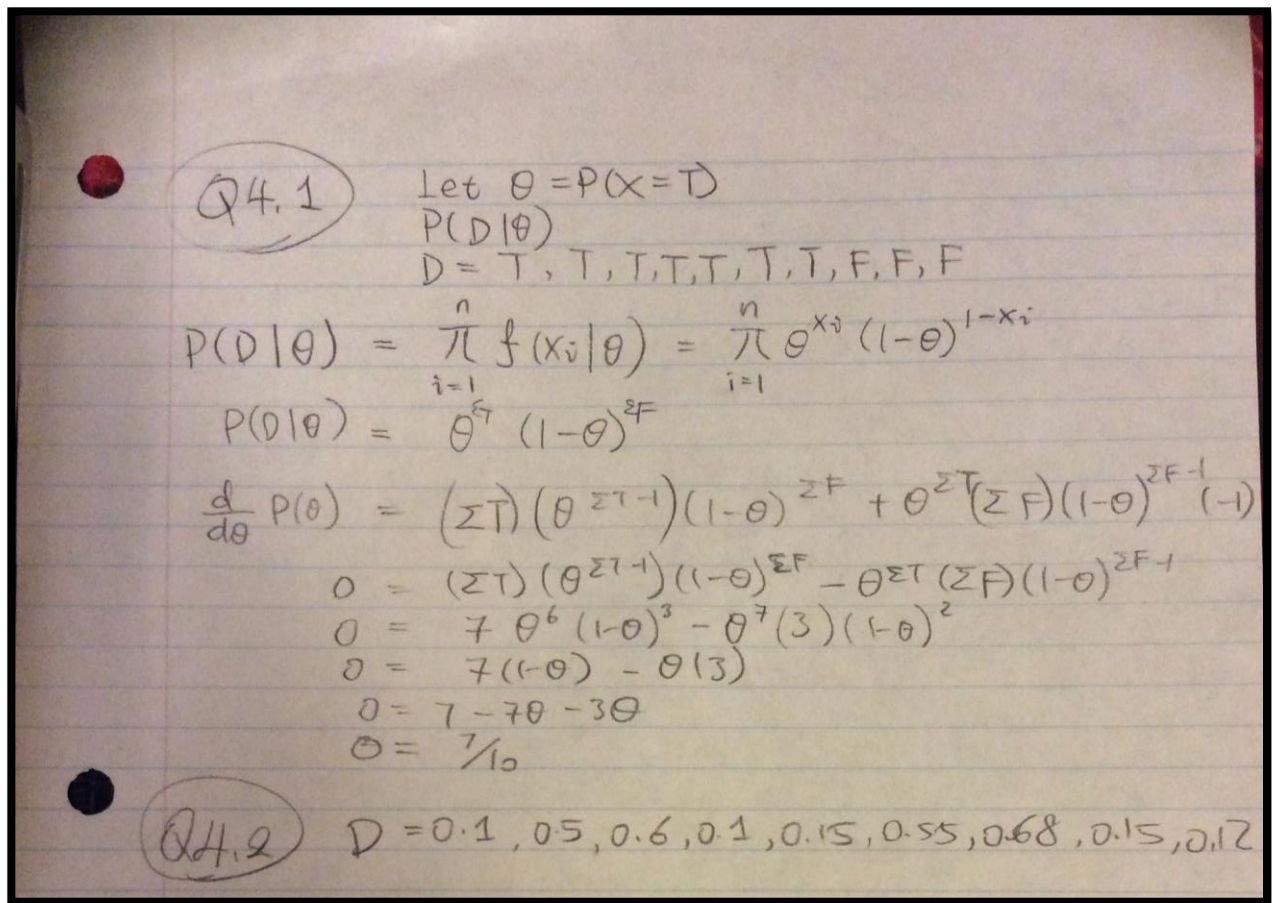 Q4.1 Let θ = P(X=T)
P(D|θ)
D = T, T, T, T, T, T, T, F, F, F
P(D|θ) = π_{i=1}^{n} f(xi|θ) = π_{i=1}^{n} θ^{xi} (1-θ)^{1-xi}
P(D|θ) = θ^{ΣT} (1-θ)^{ΣF}
d/dθ P(θ) = (ΣT)(θ^{ΣT-1})(1-θ)^{ΣF} + θ^{ΣT}(ΣF)(1-θ)^{ΣF-1}(-1)
0 = (ΣT)(θ^{ΣT-1})(1-θ)^{ΣF} - θ^{ΣT}(ΣF)(1-θ)^{ΣF-1}
0 = 7 θ^6 (1-θ)^3 - θ^7 (3)(1-θ)^2
0 = 7(1-θ) - θ(3)
0 = 7 - 7θ - 3θ
θ = 7/10
Q4.2 D = 0.1, 0.5, 0.6, 0.1, 0.15, 0.55, 0.68, 0.15, 0.12